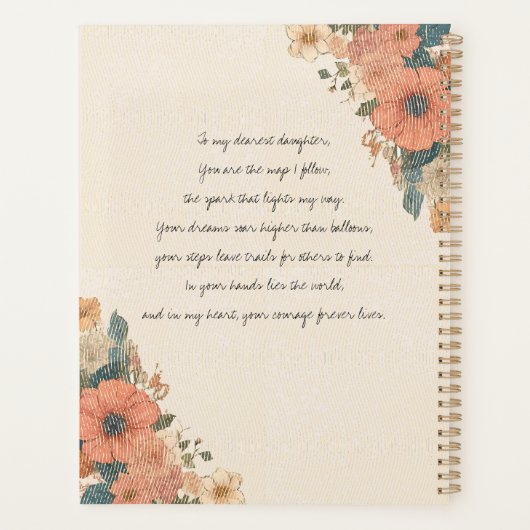 To my dearest daughter,
You are the map I follow,
the spark that lights my way.
Your dreams soar higher than balloons,
your steps leave trails for others to find.
In your hands lies the world,
and in my heart, your courage forever lives.